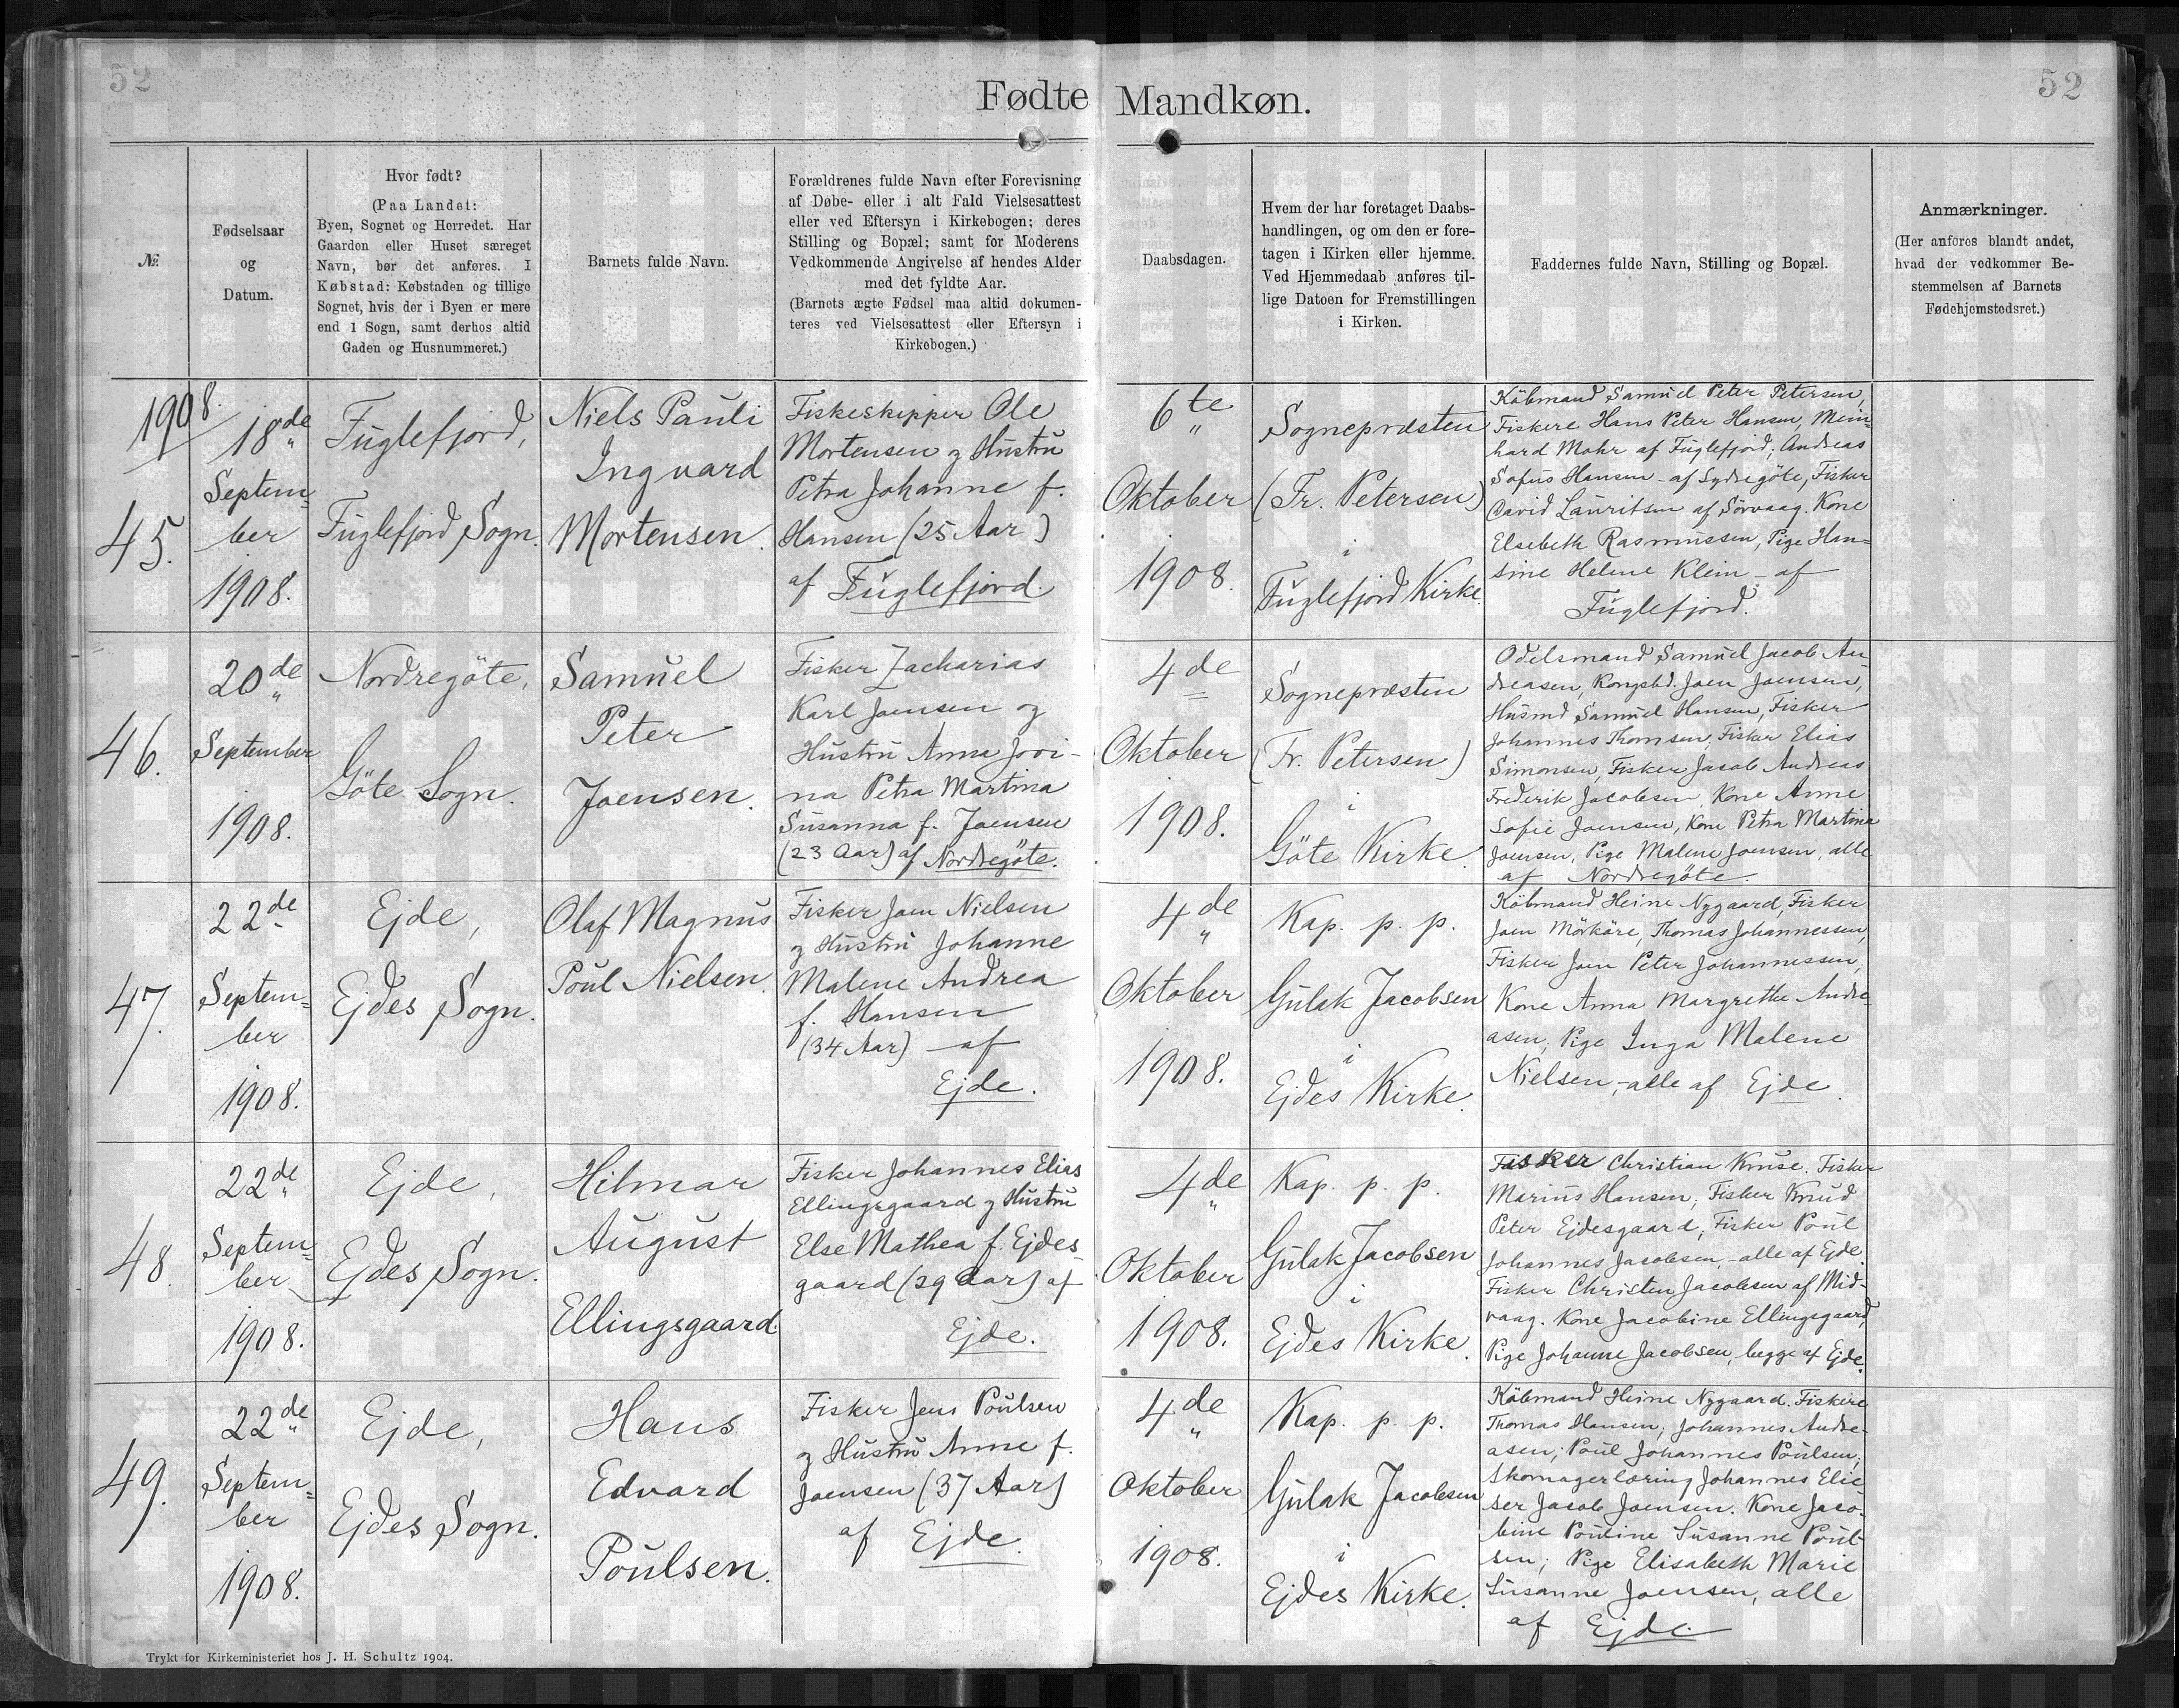 52
52
Fødte Mandkøn.
№.
Fødselsaar
og
Datum.
Hvor født?
(Paa Landet:
Byen, Sognet og Herredet. Har
Gaarden eller Huset særeget
Navn, bør det anføres. I
Købstad: Købstaden og tillige
Sognet, hvis der i Byen er mere
end 1 Sogn, samt derhos altid
Gaden og Husnummeret.)
Barnets fulde Navn.
Forældrenes fulde Navn efter Forevisning
af Døbe- eller i alt Fald Vielsesattest
eller ved Eftersyn i Kirkebogen; deres
Stilling og Bopæl; samt for Moderens
Vedkommende Angivelse af hendes Alder
med det fyldte Aar.
(Barnets ægte Fødsel maa altid dokumen-
teres ved Vielsesattest eller Eftersyn i
Kirkebogen.)
Daabsdagen.
Hvem der har foretaget Daabs-
handlingen, og om den er fore-
tagen i Kirken eller hjemme.
Ved Hjemmedaab anføres til-
lige Datoen for Fremstillingen
i Kirken.
Faddernes fulde Navn, Stilling og Bopæl.
Anmærkninger.
(Her anføres blandt andet,
hvad der vedkommer Be-
stemmelsen af Barnets
Fødehjemstedsret.)
1908.
45.
18de
Septem=
ber
1908.
Fuglefjord,
Fuglefjord Sogn.
Niels Pauli
Ingvard
Mortensen.
Fiskeskipper Ole
Mortensen og Hustru
Petra Johanne f.
Hansen (25 Aar)
af Fuglefjord.
6te
Oktober
1908.
Sognepræsten
(Fr. Petersen)
i
Fuglefjord Kirke.
Köbmand Samuel Peter Petersen,
Fiskere Hans Peter Hansen, Mein=
hard Mohr af Fuglefjord; Andreas
Sofus Hansen - af Sydregöte, Fisker
David Lauritsen af Sörvaag. Kone
Elsebeth Rasmussen, Pige Han=
sine Helene Klein - af
Fuglefjord.
46.
20de
September
1908.
Nordregöte,
Göte Sogn.
Samuel
Peter
Joensen.
Fisker Zacharias
Karl Joensen og
Hustru Anna Jovi-
na Petra Martina
Susanna f. Joensen
(23 Aar) af Nordregöte.
4de
Oktober
1908.
Sognepræsten
(Fr. Petersen)
i
Göte Kirke.
Odelsmand Samuel Jacob An-
dreasen, Kongsbd. Joen Joensen,
Husmd Samuel Hansen, Fisker
Johannes Thomsen, Fisker Elias
Simonsen, Fisker Jacob Andreas
Frederik Jacobsen, Kone Anne
Sofie Joensen, Kone Petra Martina
Joensen, Pige Malene Joensen, alle
af Nordregöte.
47.
22de
Septem=
ber
1908.
Ejde,
Ejdes Sogn.
Olaf Magnus
Poul Nielsen.
Fisker Joen Nielsen
og Hustru Johanne
Malene Andrea
f. Hansen
(34 Aar) - af
Ejde.
4de
Oktober
1908.
Kap. p. p.
Gulak Jacobsen
i
Ejdes Kirke.
Köbmand Heine Nygaard, Fisker
Joen Mörköre, Thomas Johannessen,
Fisker Joen Peter Johannessen,
Kone Anna Margrethe Andre-
asen; Pige Inga Malene
Nielsen, - alle af Ejde.
48.
22de
Septem=
ber
1908.
Ejde,
Ejdes Sogn.
Hilmar
August
Ellingsgaard.
Fisker Johannes Elias
Ellingsgaard og Hustru
Else Mathea f. Ejdes
gaard (29 Aar) af
Ejde.
4de
Oktober
1908.
Kap. p. p.
Gulak Jacobsen
i
Ejdes Kirke.
Fisker Christian Kruse. Fisker
Marius Hansen; Fisker Knud
Peter Ejdesgaard; Fisker Poul
Johannes Jacobsen, - alle af Ejde.
Fisker Christen Jacobsen af Mid-
vaag. Kone Jacobine Ellingsgaard,
Pige Johanne Jacobsen, begge af Ejde.
49.
22de
Septem=
ber
1908.
Ejde,
Ejdes Sogn.
Hans
Edvard
Poulsen.
Fisker Jens Poulsen
og Hustru Anne f.
Joensen (37 Aar)
af Ejde.
4de
Oktober
1908.
Kap. p. p.
Gulak Jacobsen
i
Ejdes Kirke.
Köbmand Heine Nygaard. Fiskere
Thomas Hansen; Johannes Andre-
asen; Poul Johannes Poulsen;
Skomagerlæring Johannes Elie
ser Jacob Joensen. Kone Jaco-
bine Pouline Susanne Poul-
sen; Pige Elisabeth Marie
Susanne Joensen, alle
af Ejde.
Trykt for Kirkeministeriet hos J. H. Schultz 1904.